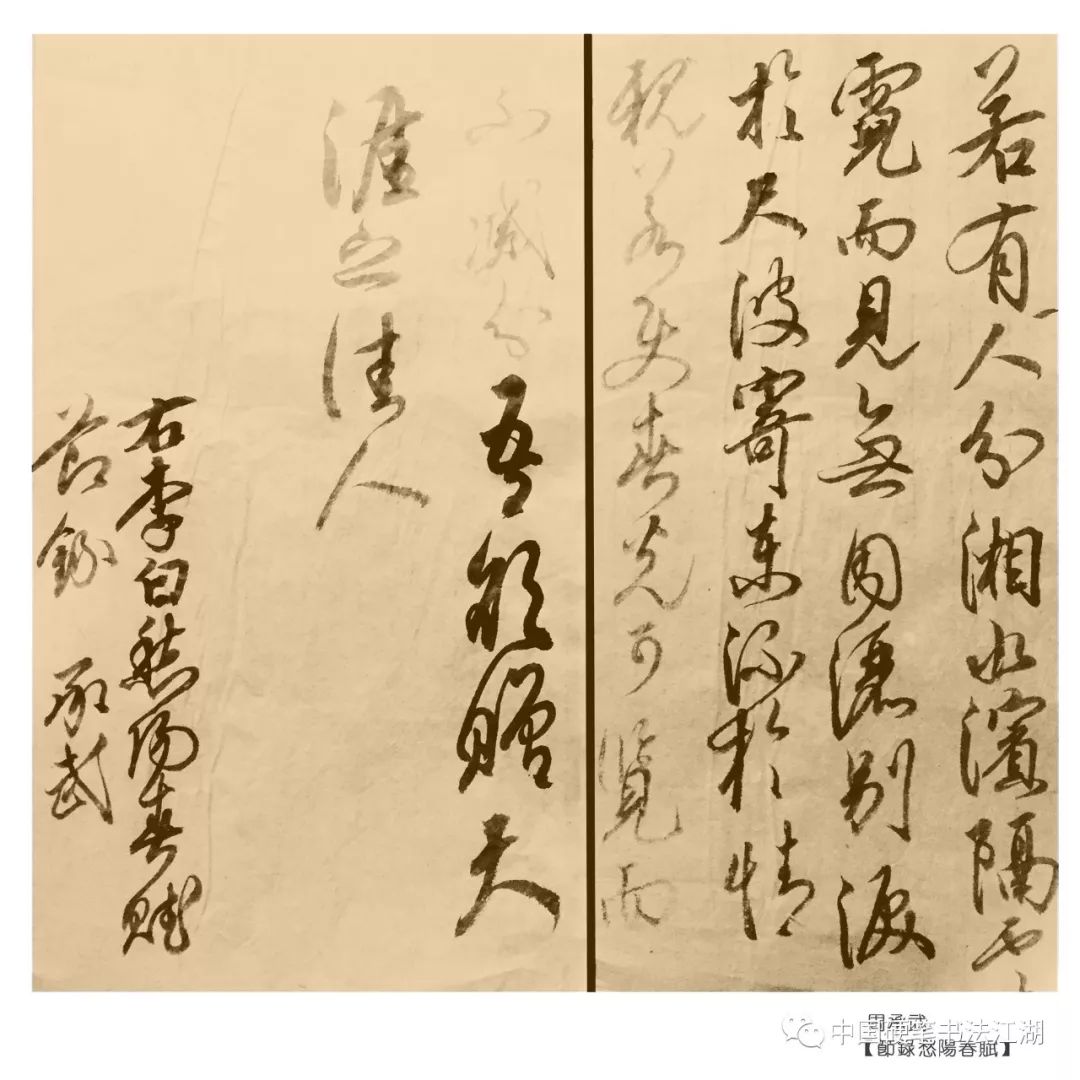 若有人兮湘水濱隔雲
霓而見無因灑別淚
於尺波寄東流於情
親若使春光可覽而
不滅兮吾欲贈天
涯之佳人
右李白愁陽春賦
節錄 承武
周承武
中国硬笔书法江湖
【節録愁陽春賦】